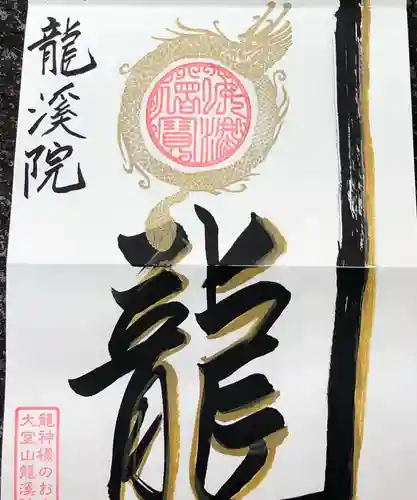 龍
龍溪院
龍神様のお
大室山龍溪